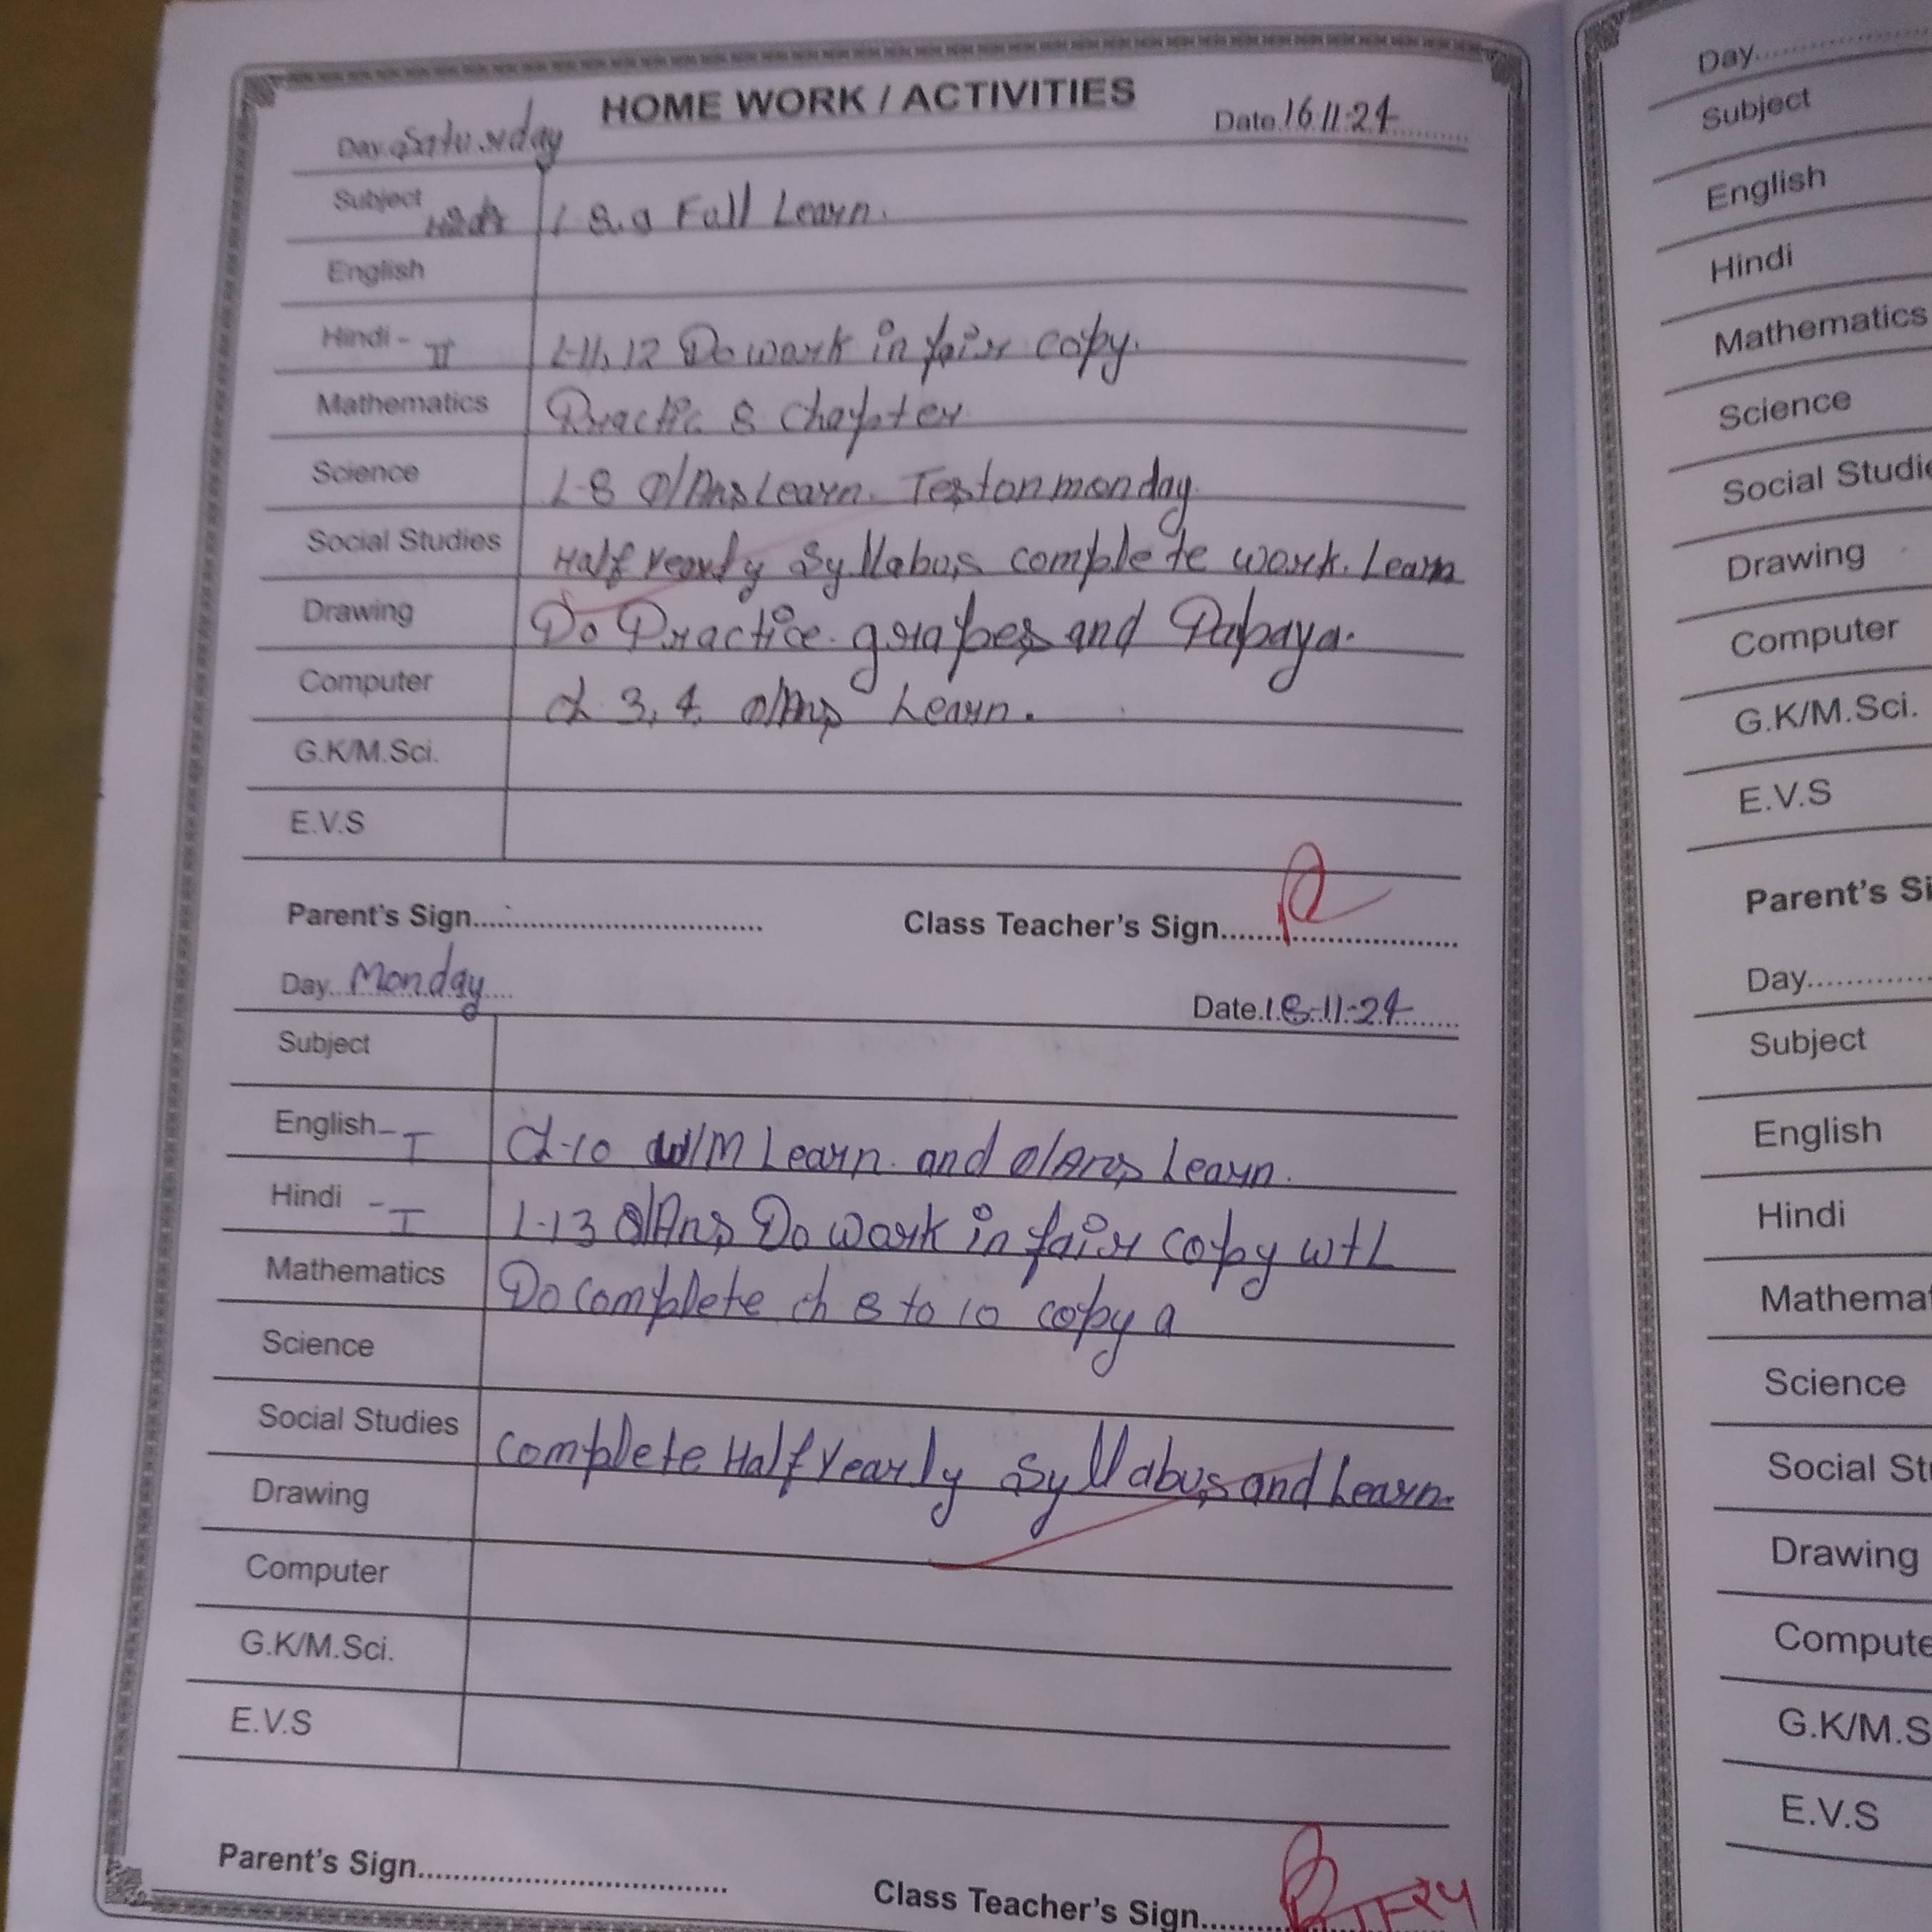 HOME WORK / ACTIVITIES
Day Saturday Date 16.11.24
Subject L 8.9 Full Learn.
English
Hindi - II L-11, 12 Do work in fair copy.
Mathematics Practic 8 Chapter
Science L-8 Q/Ans Learn. Test on monday.
Social Studies Half Yearly Syllabus complete work. Learn
Drawing Do Practice. grapes and Papaya.
Computer ch 3, 4. Q/Ans Learn.
G.K/M.Sci.
E.V.S
Parent's Sign.......................................... Class Teacher's Sign..............................
Day..Monday.... Date.18-11-24.......
Subject
English - I Ch-10 W/M Learn. and Q/Ans Learn.
Hindi - I L-13 Q/Ans Do work in fair copy wtL
Mathematics Do complete ch 8 to 10 copy a
Science
Social Studies Complete Half Yearly Syllabus and Learn.
Drawing
Computer
G.K/M.Sci.
E.V.S
Parent's Sign.......................................... Class Teacher's Sign..............
Day....................
Subject
English
Hindi
Mathematics
Science
Social Studie
Drawing
Computer
G.K/M.Sci.
E.V.S
Parent's Si
Day....................
Subject
English
Hindi
Mathemat
Science
Social Stu
Drawing
Compute
G.K/M.S
E.V.S